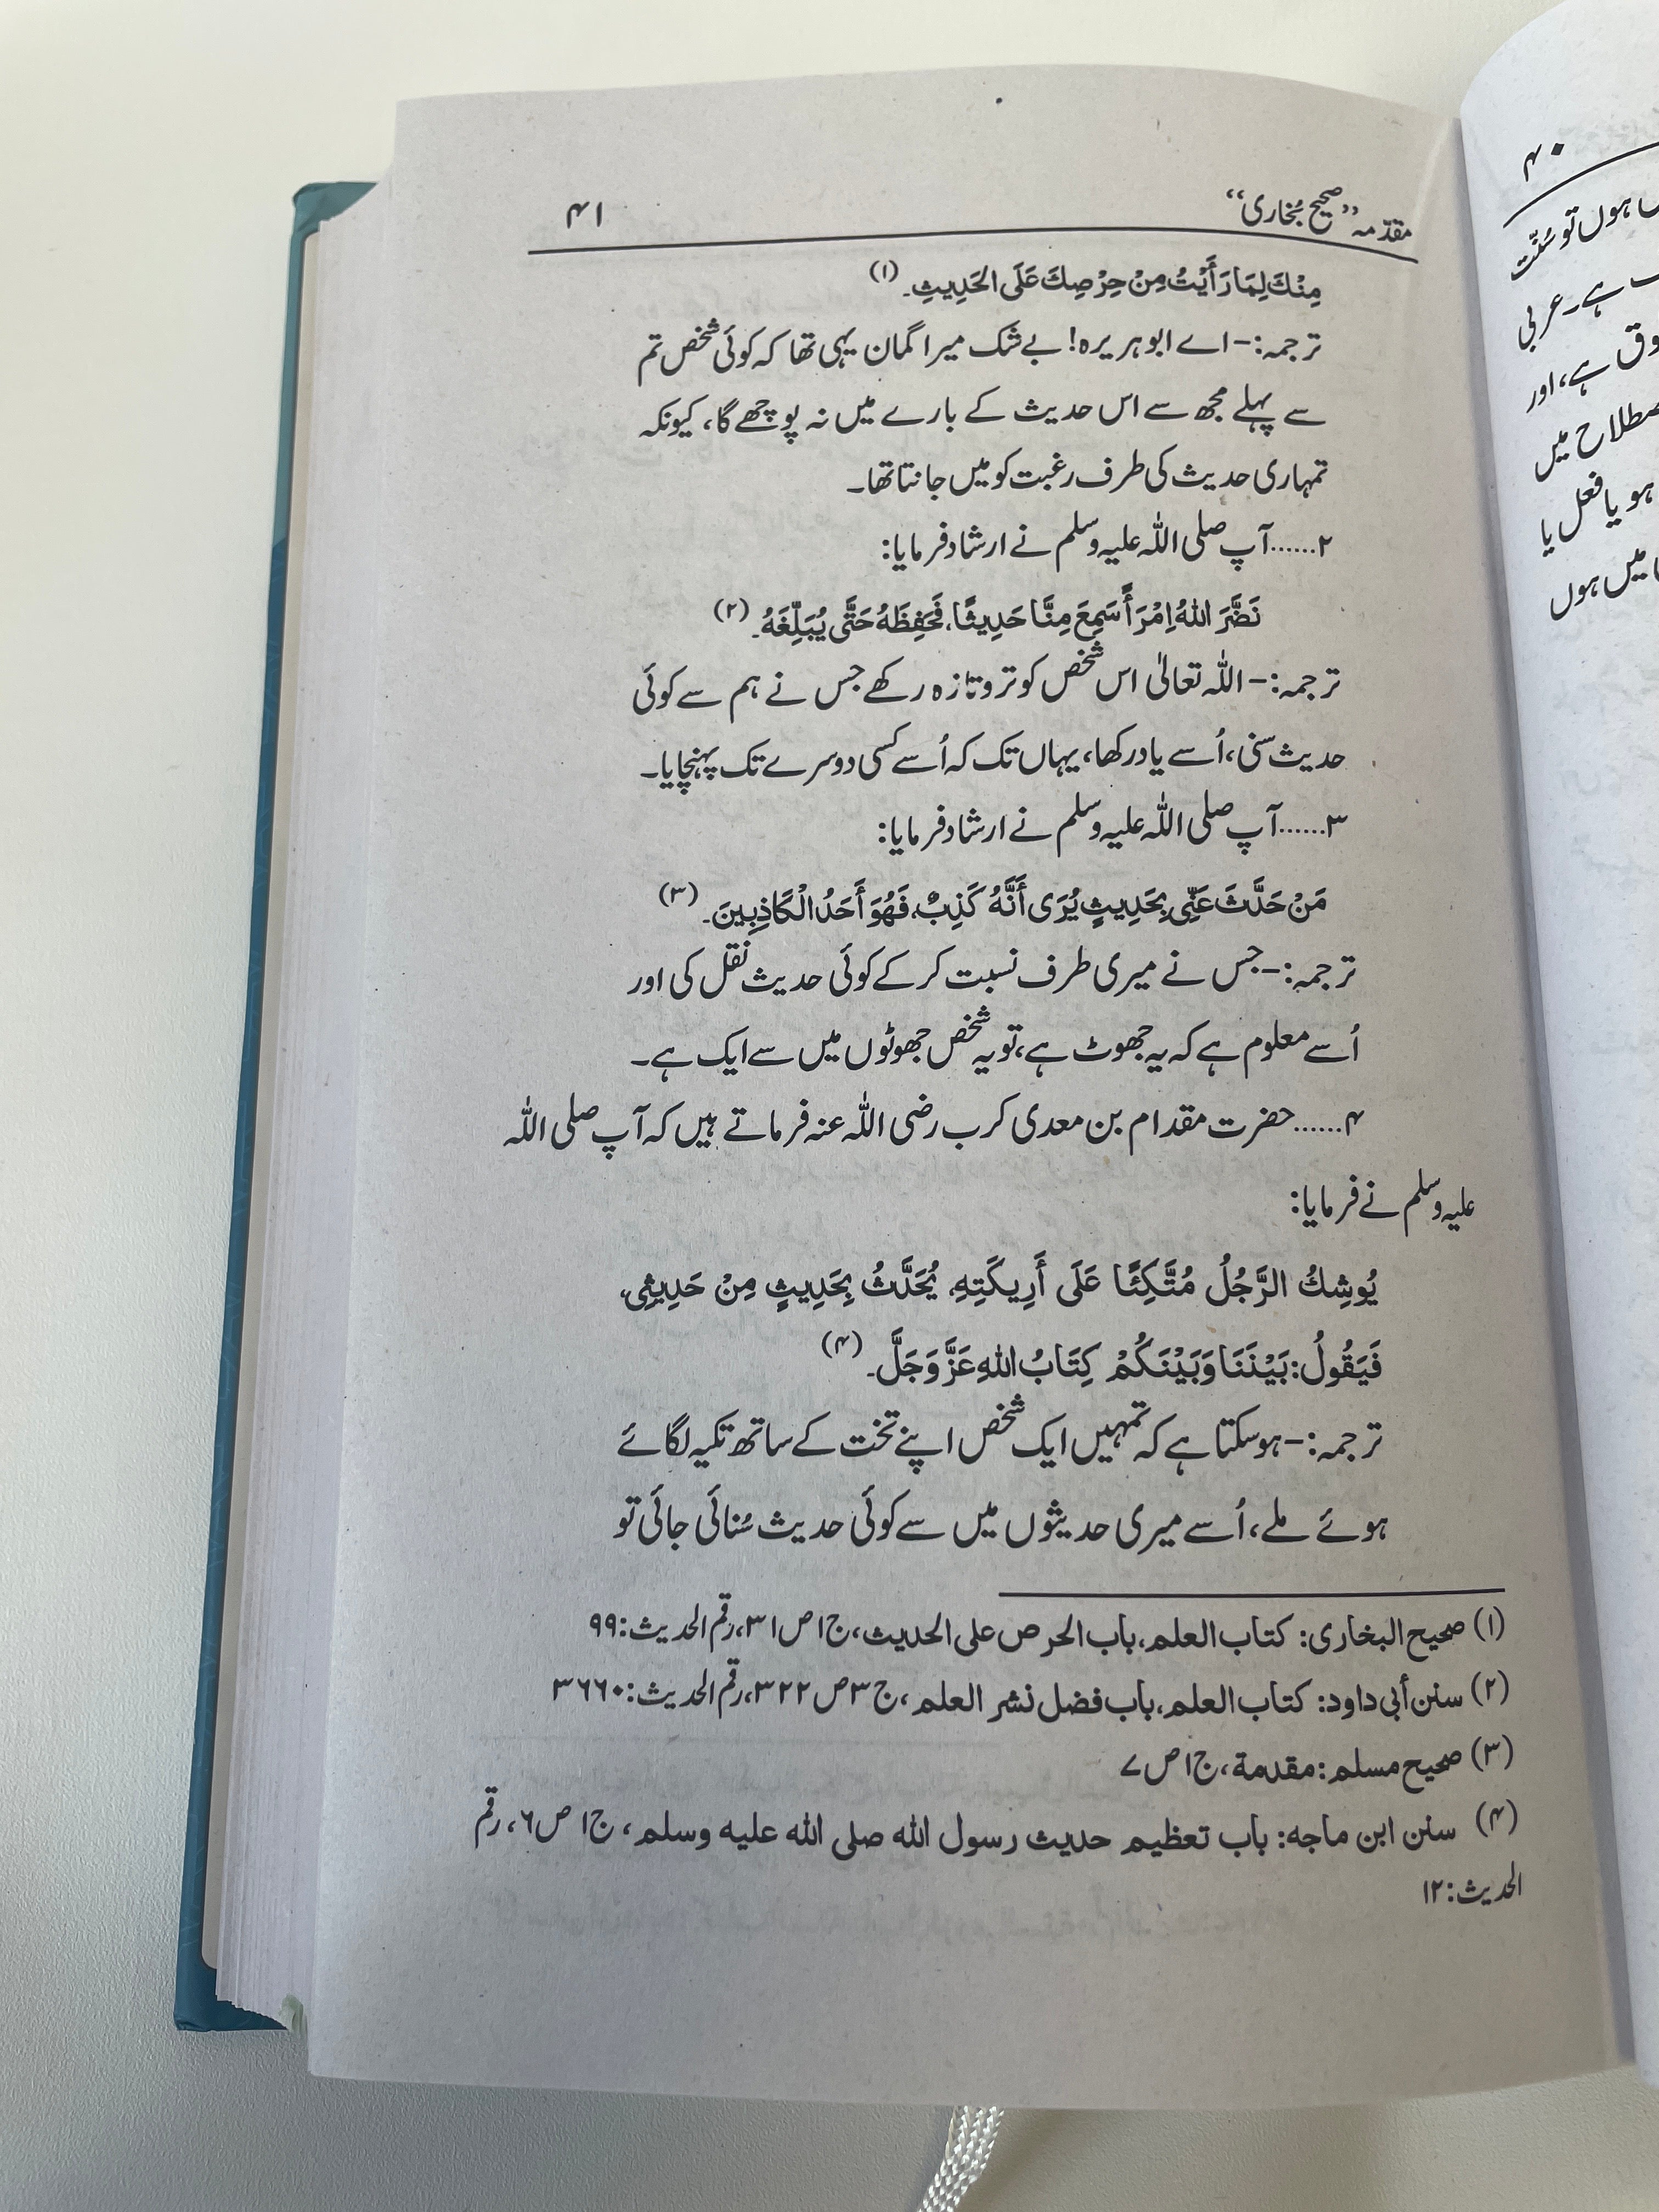 مقدّمہ ”صحیح بُخاری“ ۴۱
مِنْكَ لِمَا رَأَيْتُ مِنْ حِرْصِكَ عَلَى الحَدِيثِ۔ (۱)
ترجمہ:- اے ابوہریرہ! بے شک میرا گمان یہی تھا کہ کوئی شخص تم
سے پہلے مجھ سے اس حدیث کے بارے میں نہ پوچھے گا، کیونکہ
تمہاری حدیث کی طرف رغبت کو میں جانتا تھا۔
۲......آپ صلی اللہ علیہ وسلم نے ارشاد فرمایا:
نَضَّرَ اللهُ اِمْرَأً سَمِعَ مِنَّا حَدِيثًا، فَحَفِظَهُ حَتَّى يُبَلِّغَهُ۔ (۲)
ترجمہ:- اللہ تعالیٰ اس شخص کو تر و تازہ رکھے جس نے ہم سے کوئی
حدیث سنی، اُسے یاد رکھا، یہاں تک کہ اُسے کسی دوسرے تک پہنچایا۔
۳......آپ صلی اللہ علیہ وسلم نے ارشاد فرمایا:
مَنْ حَدَّثَ عَنِّي بِحَدِيثٍ يُرَى أَنَّهُ كَذِبٌ، فَهُوَ أَحَدُ الْكَاذِبِينَ۔ (۳)
ترجمہ:- جس نے میری طرف نسبت کرکے کوئی حدیث نقل کی اور
اُسے معلوم ہے کہ یہ جھوٹ ہے، تو یہ شخص جھوٹوں میں سے ایک ہے۔
۴......حضرت مقدام بن معدی کرب رضی اللہ عنہ فرماتے ہیں کہ آپ صلی اللہ
علیہ وسلم نے فرمایا:
يُوشِكُ الرَّجُلُ مُتَّكِئًا عَلَى أَرِيكَتِهِ، يُحَدَّثُ بِحَدِيثٍ مِنْ حَدِيثِي،
فَيَقُولُ: بَيْنَنَا وَبَيْنَكُمْ كِتَابُ اللهِ عَزَّ وَجَلَّ۔ (۴)
ترجمہ:- ہوسکتا ہے کہ تمہیں ایک شخص اپنے تخت کے ساتھ تکیہ لگائے
ہوئے ملے، اُسے میری حدیثوں میں سے کوئی حدیث سُنائی جائی تو
(۱) صحيح البخاری: كتاب العلم، باب الحرص على الحديث، ج۱ ص۳۱، رقم الحديث:۹۹
(۲) سنن أبی داود: كتاب العلم، باب فضل نشر العلم، ج۳ ص۳۲۲، رقم الحديث:۳۶۶۰
(۳) صحیح مسلم: مقدمة، ج۱ ص۷
(۴) سنن ابن ماجه: باب تعظیم حدیث رسول الله صلی الله علیه وسلم، ج۱ ص۶، رقم
الحدیث:۱۲
۴۰
ہوں تو سُنّت
ہے۔عربی
ہے، اور
میں
ہو یا فعل یا
میں ہوں